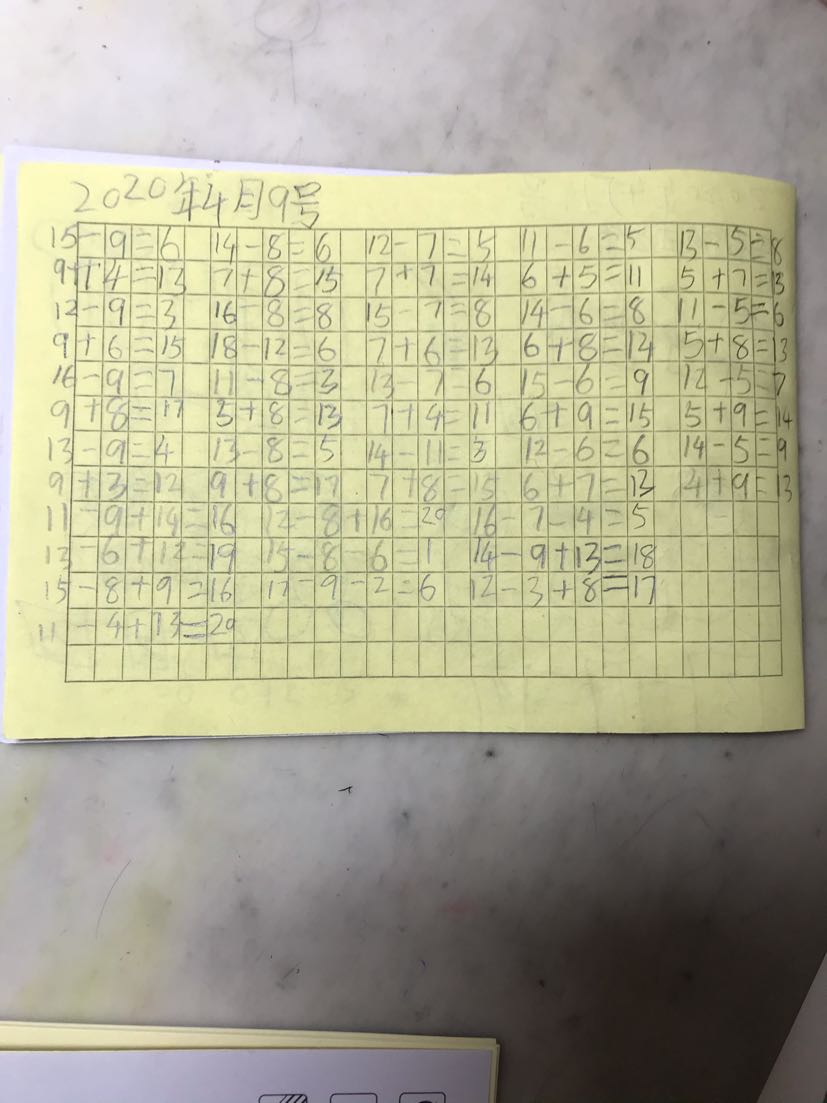 2020年4月9号
15-9=6 14-8=6 12-7=5 11-6=5 13-5=8
9+4=13 7+8=15 7+7=14 6+5=11 5+7=13
12-9=3 16-8=8 15-7=8 14-6=8 11-5=6
9+6=15 18-12=6 7+6=13 6+8=14 5+8=13
16-9=7 11-8=3 13-7=6 15-6=9 12-5=7
9+8=17 5+8=13 7+4=11 6+9=15 5+9=14
13-9=4 13-8=5 14-11=3 12-6=6 14-5=9
9+3=12 9+8=17 7+8=15 6+7=13 4+9=13
11-9+14=16 12-8+16=20 16-7-4=5
13-6+12=19 15-8-6=1 14-9+13=18
15-8+9=16 17-9-2=6 12-3+8=17
11-4+13=20